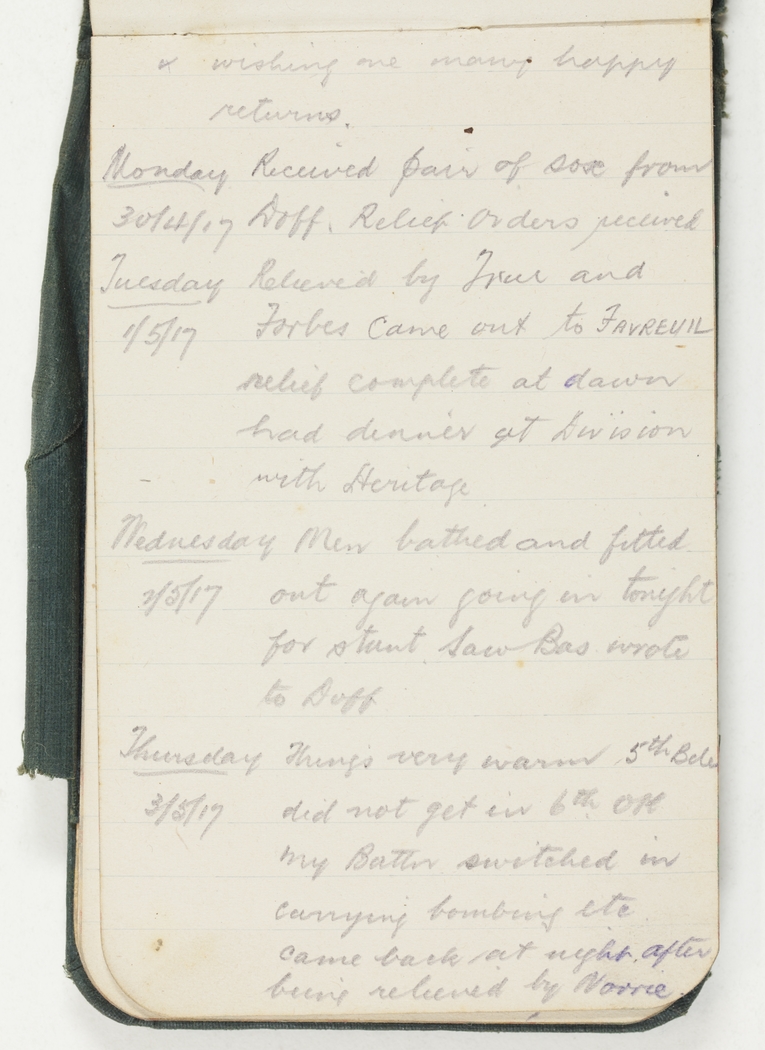 & wishing me many happy
returns.
Monday Received pair of sox from
30/4/17 Doff. Relief Orders received
Tuesday Relieved by True and
1/5/17 Forbes came out to FAVREUIL
relief complete at dawn
had dinner at Division
with Heritage
Wednesday Men bathed and fitted
2/5/17 out again going in tonight
for stunt Saw Bas wrote
to Doff
Thursday Things very warm 5th Bde
3/5/17 did not get in 6th OK
My Battn switched in
carrying bombing etc
came back at night after
being relieved by Norrie.